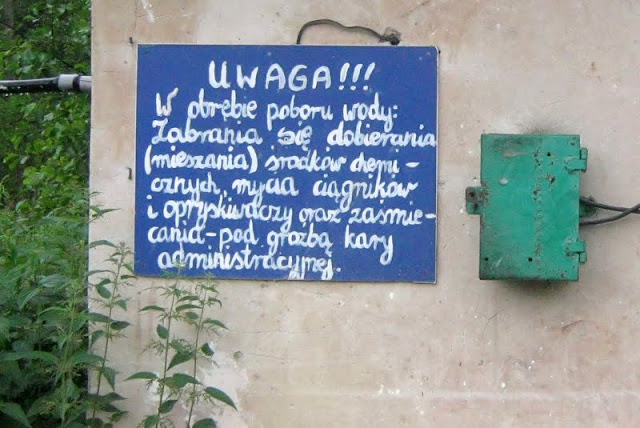 UWAGA!!!
W obrębie poboru wody:
Zabrania się dobierania
(mieszania) środków chemi-
cznych, mycia ciągników
i opryskiwaczy oraz zaśmie-
cania-pod groźbą kary
administracyjnej.